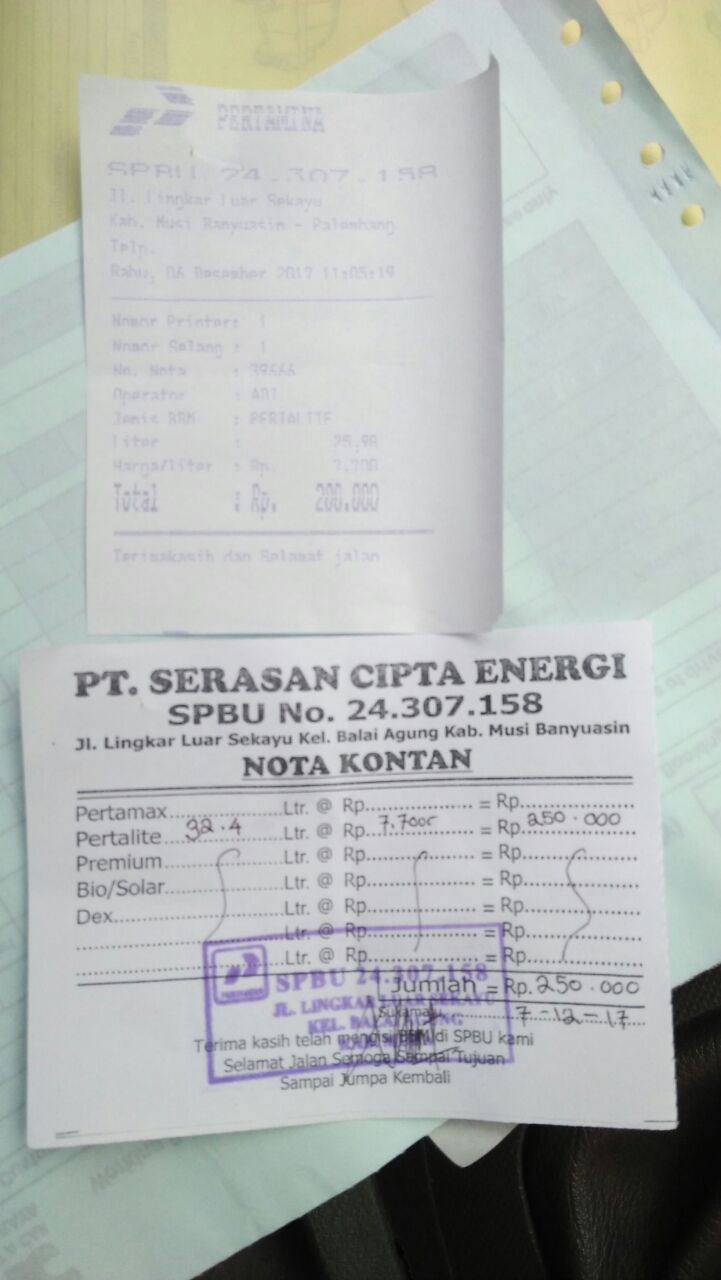 PERTAMINA
SPBU 24.307.158
Jl. Lingkar Luar Sekayu
Kab. Musi Banyuasin - Palembang
Telp.
Rabu, 06 Desember 2017 11:05:19
Nomor Printer: 1
Nomor Selang : 1
No. Nota : 39666
Operator : ADI
Jenis BBM : PERTALITE
Liter : 25,98
Harga/liter : Rp. 7.700
Total : Rp. 200.000
Terimakasih dan Selamat jalan
PT. SERASAN CIPTA ENERGI
SPBU No. 24.307.158
Jl. Lingkar Luar Sekayu Kel. Balai Agung Kab. Musi Banyuasin
NOTA KONTAN
Pertamax....................Ltr. @ Rp.................... = Rp....................
Pertalite 32.4 Ltr. @ Rp. 7.700 = Rp. 250.000
Premium....................Ltr. @ Rp.................... = Rp....................
Bio/Solar....................Ltr. @ Rp.................... = Rp....................
Dex....................Ltr. @ Rp.................... = Rp....................
....................Ltr. @ Rp.................... = Rp....................
....................Ltr. @ Rp.................... = Rp....................
Jumlah = Rp. 250.000
7-12-17
PERTAMINA
SPBU 24.307.158
JL. LINGKAR LUAR SEKAYU
KEL. BALAI AGUNG
Terima kasih telah mengisi BBM di SPBU kami
Selamat Jalan Semoga Sampai Tujuan
Sampai Jumpa Kembali